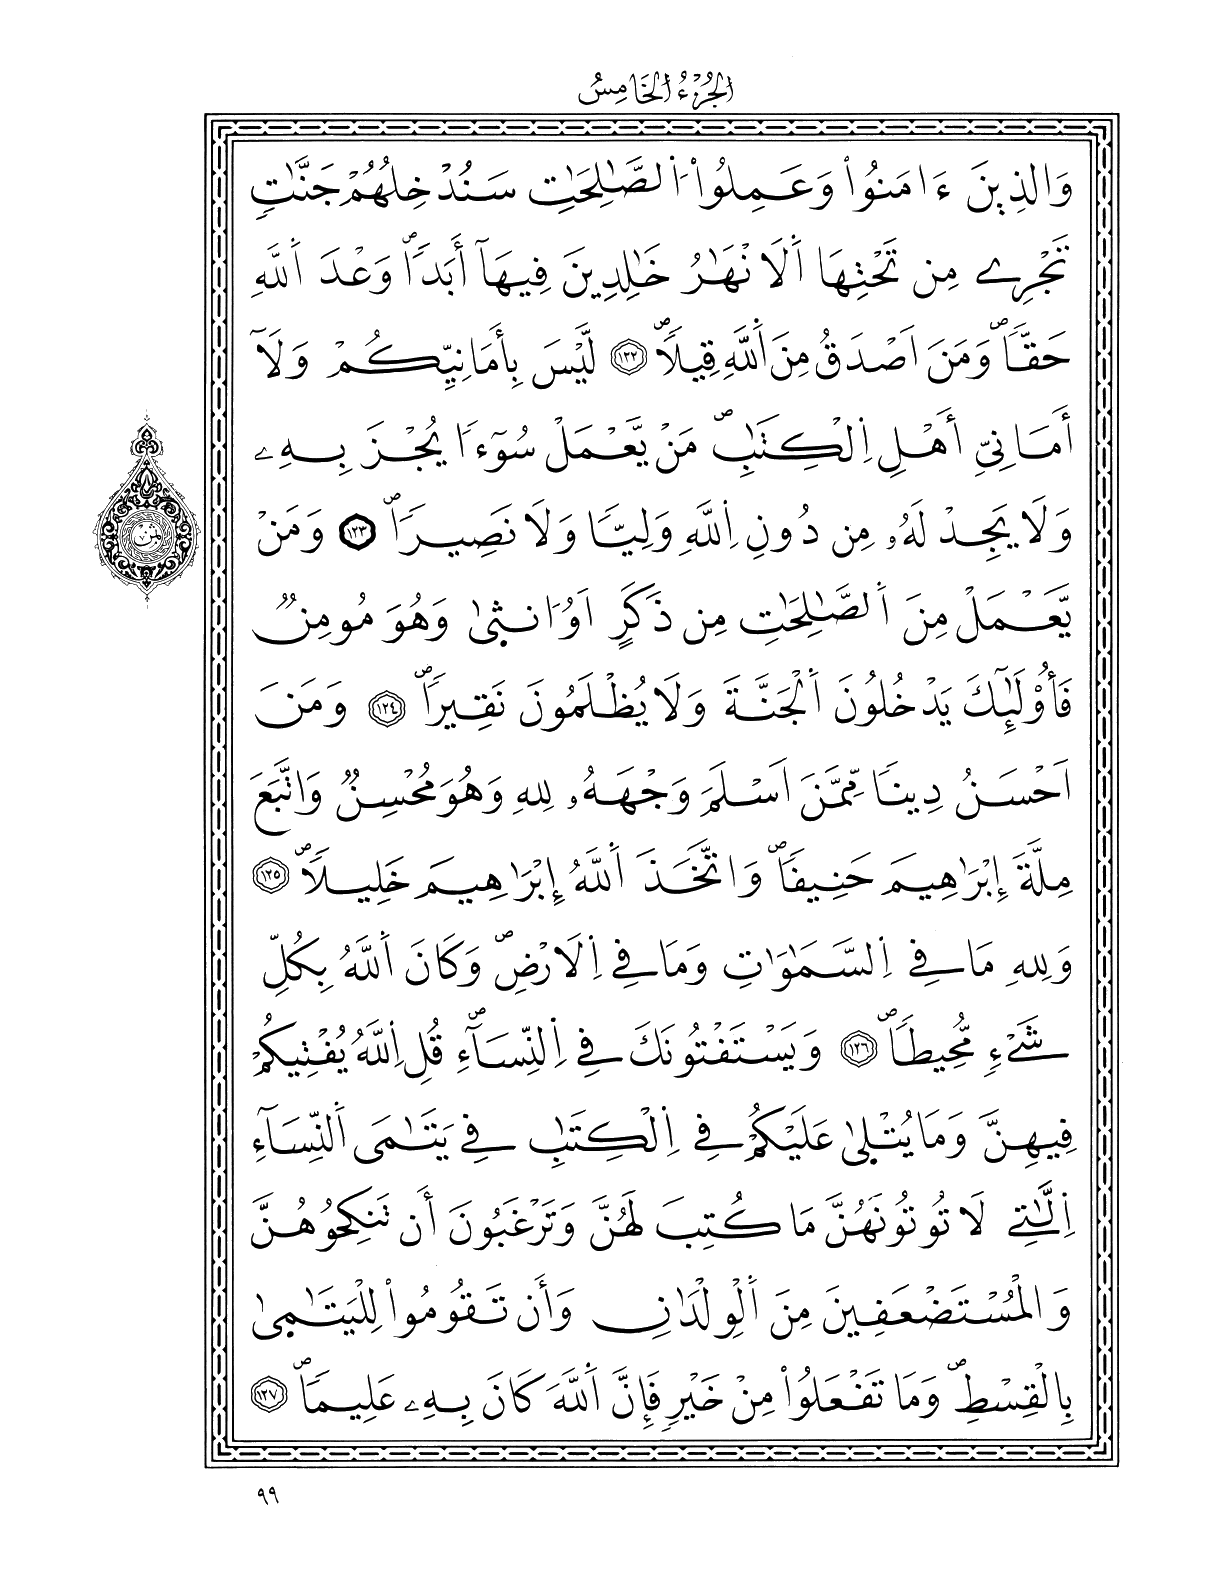 الجُزْءُ الخَامِسُ
وَالذِينَ ءَامَنُواْ وَعَمِلُواْ اُ۬لصَّٰلِحَٰتِ سَنُدْخِلُهُمْ جَنَّٰتٖ
تَجْرِے مِن تَحْتِهَا اَ۬لَانْهَٰرُ خَٰلِدِينَ فِيهَآ أَبَداٗۖ وَعْدَ اَ۬للَّهِ
حَقّاٗۖ وَمَنَ اَصْدَقُ مِنَ اَ۬للَّهِ قِيلاٗۖ ١٢٢ لَّيْسَ بِأَمَانِيِّكُمْ وَلَآ
أَمَانِيِّ أَهْلِ اِ۬لْكِتَٰبِۖ مَنْ يَّعْمَلْ سُوٓءاٗ يُجْزَ بِهِۦ
وَلَا يَجِدْ لَهُۥ مِن دُونِ اِ۬للَّهِ وَلِيّاٗ وَلَا نَصِيراٗۖ ١٢٣ وَمَنْ
يَّعْمَلْ مِنَ اَ۬لصَّٰلِحَٰتِ مِن ذَكَرٍ اَوُ ا۟نث۪يٰ وَهُوَ مُومِنٞ
فَأُوْلَٰٓئِكَ يَدْخُلُونَ اَ۬لْجَنَّةَ وَلَا يُظْلَمُونَ نَقِيراٗۖ ١٢٤ وَمَنَ
اَحْسَنُ دِيناٗ مِّمَّنَ اَسْلَمَ وَجْهَهُۥ لِلهِ وَهُوَ مُحْسِنٞ وَاتَّبَعَ
مِلَّةَ إِبْرَٰهِيمَ حَنِيفاٗۖ وَاتَّخَذَ اَ۬للَّهُ إِبْرَٰهِيمَ خَلِيلاٗۖ ١٢٥
وَلِلهِ مَا فِے اِ۬لسَّمَٰوَٰتِ وَمَا فِے اِ۬لَارْضِۖ وَكَانَ اَ۬للَّهُ بِكُلِّ
شَےْءٖ مُّحِيطاٗۖ ١٢٦ وَيَسْتَفْتُونَكَ فِے اِ۬لنِّسَآءِۖ قُلِ اِ۬للَّهُ يُفْتِيكُمْ
فِيهِنَّ وَمَا يُتْل۪يٰ عَلَيْكُمْ فِے اِ۬لْكِتَٰبِ فِے يَتَٰمَى اَ۬لنِّسَآءِ
اِ۬لَّٰتِے لَا تُوتُونَهُنَّ مَا كُتِبَ لَهُنَّ وَتَرْغَبُونَ أَن تَنكِحُوهُنَّ
وَالْمُسْتَضْعَفِينَ مِنَ اَ۬لْوِلْدَٰنِ وَأَن تَقُومُواْ لِلْيَتَٰم۪يٰ
بِالْقِسْطِۖ وَمَا تَفْعَلُواْ مِنْ خَيْرٖ فَإِنَّ اَ۬للَّهَ كَانَ بِهِۦ عَلِيماٗۖ ١٢٧
ثمن
٩٩